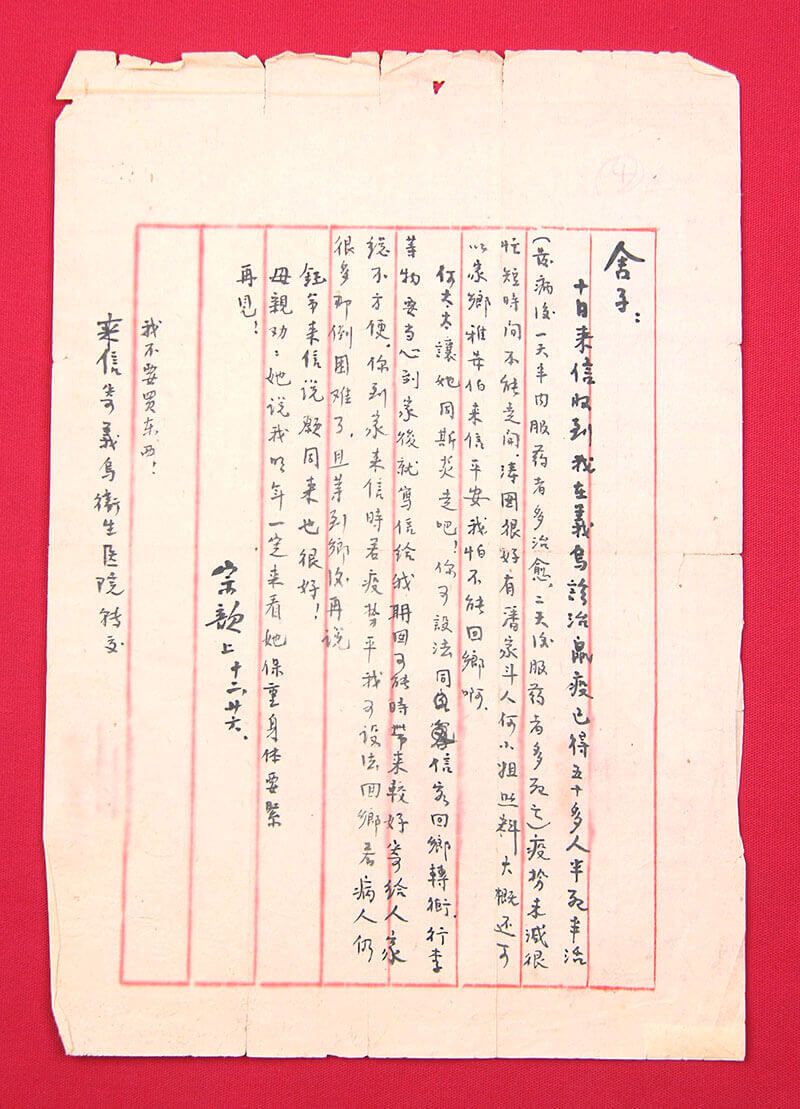 舍子:
十日来信收到我在義烏診治鼠疫已得五十多人半死半治
(发病後一天半内服药者多治愈,二天後服药者多死亡)疫势未减很
忙短時间不能走開。涛囡很好有潘家斗人何小姐照料大概还可
以家鄉雅安伯来信平安我怕不能回鄉啊。
何太太讓她同斯炎走吧!你可設法同信客回鄉轉衢。行李
等物要当心到家後就寫信给我明回可能時带来較好寄给人家
总不方便。你到家来信時若疫势平我可設法回鄉若病人仍
很多那倒困难了。且等到鄉後再说
鈺弟来信说願同来也很好!
母親劝:她说我明年一定来看她保重身体要緊
再見!
宗歆上十二廿六。
我不要買东西!
来信寄義烏衞生医院转交